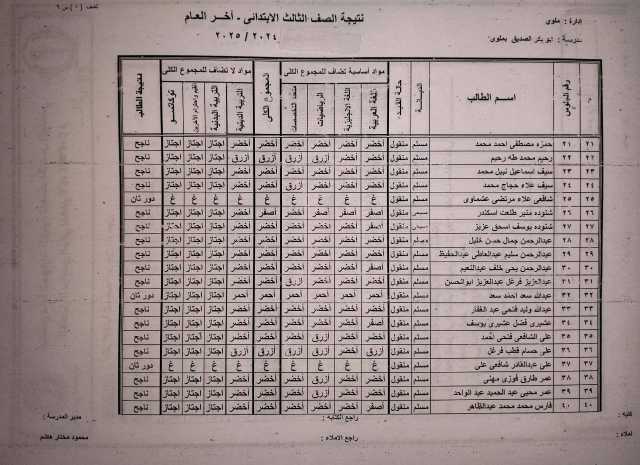 كشف (١) ص ٦
نتيجة الصف الثالث الابتدائى - أخر العام
٢٠٢٤ / ٢٠٢٥
إدارة : ملوي
مدرسة : ابو بكر الصديق بملوى
م رقم الجلوس اسم الطالب الديانة حالة القيد مواد أساسية تضاف للمجموع الكلى المجموع الكلى مواد لا تضاف للمجموع الكلى نتيجة الطالب
اللغة العربية اللغة الإنجليزية الرياضيات متعدد التخصصات التربية الدينية التربية البدنية القيم واحترام الآخرين توكاتسو
٢١ ٢١ حمزه مصطفى احمد محمد مسلم منقول أخضر أخضر أخضر أخضر أخضر أخضر اجتاز اجتاز اجتاز ناجح
٢٢ ٢٢ رحيم محمد طه رحيم مسلم منقول أخضر أخضر أزرق أزرق أزرق أزرق اجتاز اجتاز اجتاز ناجح
٢٣ ٢٣ سيف اسماعيل نبيل محمد مسلم منقول أخضر أخضر أخضر أخضر أخضر أخضر اجتاز اجتاز اجتاز ناجح
٢٤ ٢٤ سيف علاء حجاج محمد مسلم منقول أخضر أخضر أخضر أزرق أخضر أخضر اجتاز اجتاز اجتاز ناجح
٢٥ ٢٥ شافعى علاء مرتضى عشماوى مسلم منقول غ غ غ غ غ غ غ غ غ دور ثان
٢٦ ٢٦ شنوده منير طلعت اسكندر منقول أصفر أصفر أصفر أخضر أصفر أخضر اجتاز اجتاز اجتاز ناجح
٢٧ ٢٧ شنوده يوسف اسحق عزيز منقول أصفر أخضر أخضر أخضر أخضر أخضر اجتاز اجتاز اجتاز ناجح
٢٨ ٢٨ عبدالرحمن جمال حسن خليل مسلم منقول أخضر أخضر أخضر أخضر أخضر أخضر اجتاز اجتاز اجتاز ناجح
٢٩ ٢٩ عبدالرحمن سليم عبدالعاطى عبدالحفيظ مسلم منقول أخضر أخضر أخضر أخضر أخضر أخضر اجتاز اجتاز اجتاز ناجح
٣٠ ٣٠ عبدالرحمن يحى خلف عبدالنعيم مسلم منقول أصفر أخضر أخضر أخضر أخضر أخضر اجتاز اجتاز اجتاز ناجح
٣١ ٣١ عبدالعزيز فرغل عبدالعزيز ابوالحسن مسلم منقول أخضر أخضر أخضر أزرق أخضر أخضر اجتاز اجتاز اجتاز ناجح
٣٢ ٣٢ عبدالله سعد احمد سعد مسلم منقول أحمر أحمر أحمر أحمر أحمر أحمر اجتاز اجتاز اجتاز دور ثان
٣٣ ٣٣ عبدالله وليد فتحى عبد الغفار مسلم منقول أخضر أخضر أخضر أخضر أخضر أخضر اجتاز اجتاز اجتاز ناجح
٣٤ ٣٤ عشيرى فضل عشيرى يوسف مسلم منقول أصفر أخضر أخضر أخضر أخضر أخضر اجتاز اجتاز اجتاز ناجح
٣٥ ٣٥ على الشافعى فتحى أحمد مسلم منقول أخضر أخضر أزرق أخضر أخضر أخضر اجتاز اجتاز اجتاز ناجح
٣٦ ٣٦ على حسام قطب فرغل مسلم منقول أزرق أخضر أزرق أخضر أزرق أزرق اجتاز اجتاز اجتاز ناجح
٣٧ ٣٧ على عبدالقادر شافعى على مسلم منقول غ غ غ غ غ غ غ غ غ دور ثان
٣٨ ٣٨ عمر طارق فوزى مهنى مسلم منقول أخضر أخضر أزرق أخضر أخضر أخضر اجتاز اجتاز اجتاز ناجح
٣٩ ٣٩ عمر محيى عبد الحميد عبد الواحد مسلم منقول أخضر أخضر أزرق أخضر أخضر أخضر اجتاز اجتاز اجتاز ناجح
٤٠ ٤٠ فارس محمد محمد عبدالظاهر مسلم منقول أصفر أخضر أخضر أخضر أخضر أخضر اجتاز اجتاز اجتاز ناجح
كتبه :
راجع الكتابه :
مدير المدرسة :
املاه :
راجع الاملاء :
محمود مختار هاشم